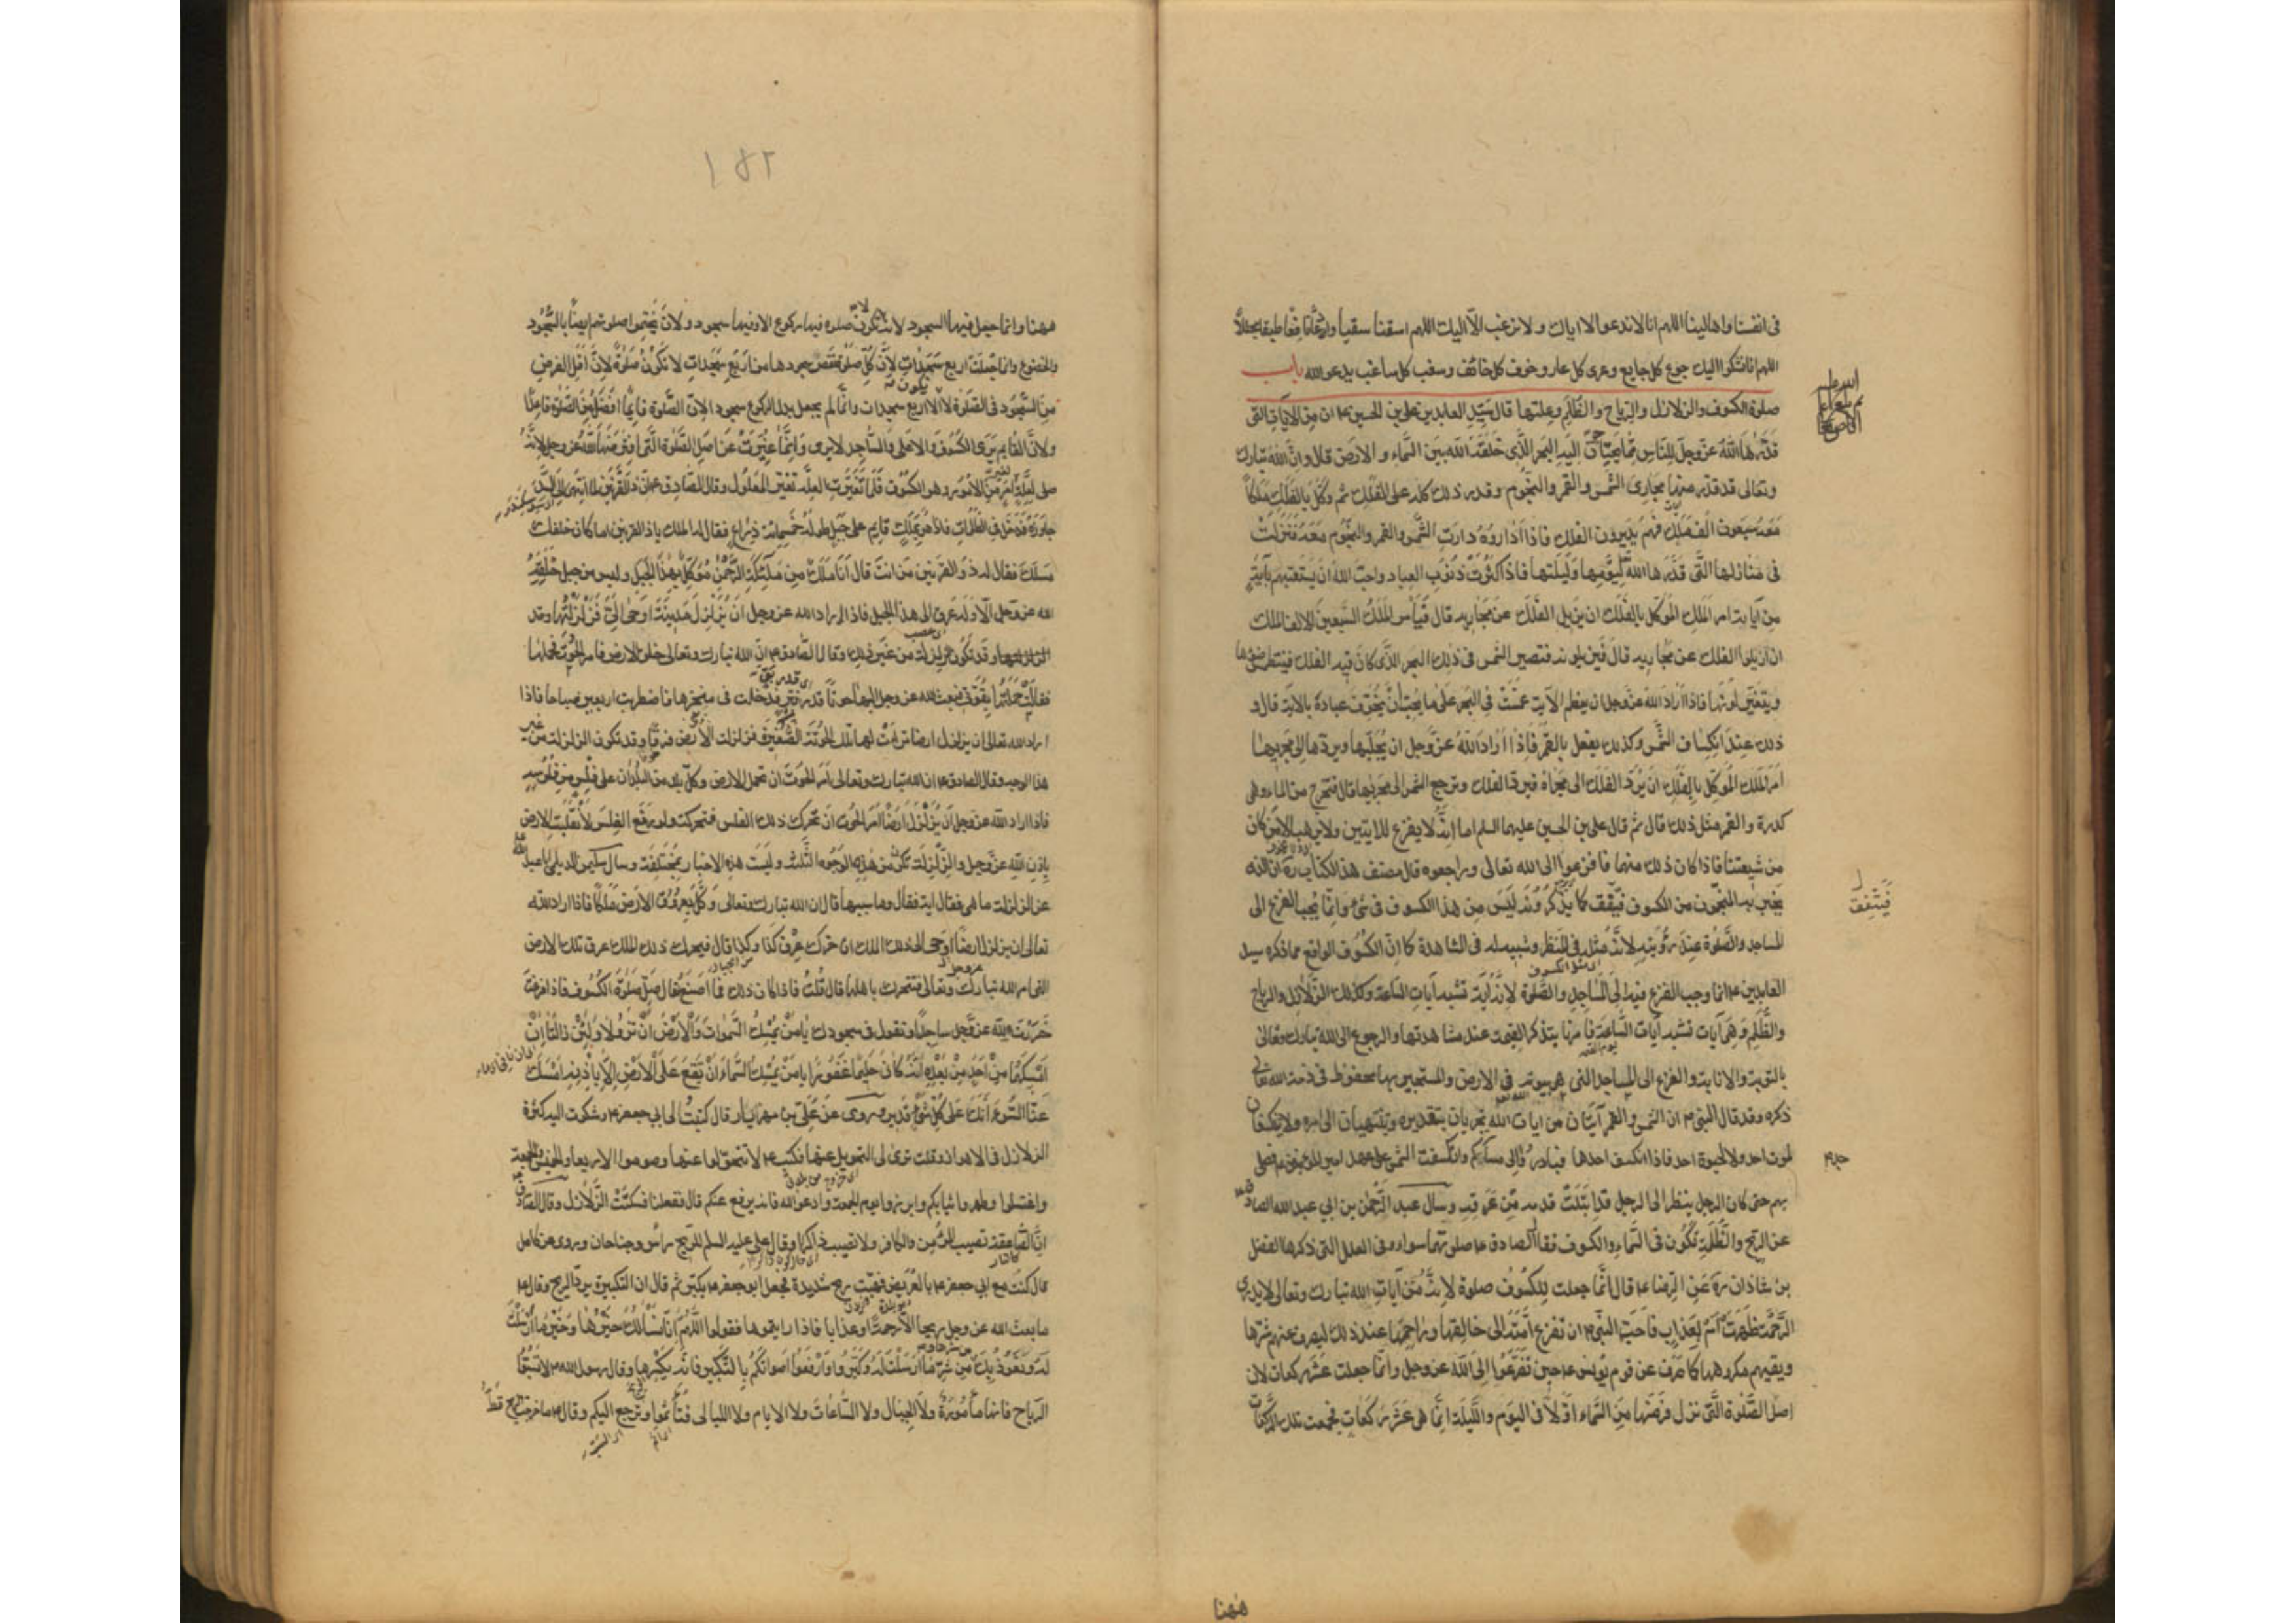 فى انفسنا واهالينا اللهم انا لا ندعو الا اياك ولا نرغب الا اليك اللهم اسقنا سقيا وادعا نافعا طبقا مجللا
اللهم انا نشكوا اليك جوع كل جايع وعرى كل عار وخوف كل خائف وسغب كل ساغب يدعو الله باب
صلوة الكسوف والزلازل والرياح والظلم وعلتها قال سيد العابدين على بن الحسين ع ان من الايات التى
قدرها الله عز وجل للناس مما يحتاجون اليه البحر الذى خلقه الله بين السماء والارض قال وان الله تبارك
وتعالى قد قدر منها مجارى الشمس والقمر والنجوم وقدر ذلك كله على الفلك ثم وكل بالفلك ملكا
معه سبعون الف ملك فهم يديرون الفلك فاذا اداروه دارت الشمس والقمر والنجوم معه فنزلت
فى منازلها التى قدرها الله ليومها وليلتها فاذا كثرت ذنوب العباد واحب الله ان يستعتبهم باية
من اياته امر الملك الموكل بالفلك ان يزيل الفلك عن مجاريه قال فيامر الملك السبعين الالف الملك
ان ازيلوا الفلك عن مجاريه قال فيزيلونه فتصير الشمس فى ذلك البحر الذى كان فيه الفلك فينطمس ضوءها
ويتغير لونها فاذا اراد الله عز وجل ان يعظم الاية غمست فى البحر على ما يحب ان يخوف عباده بالاية قال و
ذلك عند انكساف الشمس وكذلك يفعل بالقمر فاذا اراد الله عز وجل ان يجليها ويردها الى مجريها
امر الملك الموكل بالفلك ان يرد الفلك الى مجراه فيرد الفلك وترجع الشمس الى مجريها قال فتخرج من الماء وهى
كدرة والقمر مثل ذلك قال ثم قال على بن الحسين عليهما السلم اما انه لا يفزع للايتين ولا يرهب الا من كان
من شيعتنا فاذا كان ذلك منهما فافزعوا الى الله تعالى وراجعوه قال مصنف هذا الكتاب ره ان الذى
يخبر به المنجمون من الكسوف فيتفق كما يذكرونه ليس من هذا الكسوف فى شئ وانما يجب الفزع الى
المساجد والصلوة عند رؤيته لانه مثله فى المنظر وشبيه له فى المشاهدة كما ان الكسوف الواقع مما ذكره سيد
العابدين ع انما وجب الفزع فيه الى المساجد والصلوة لانه اية تشبه ايات الساعة وكذلك الزلازل والرياح
والظلم وهى ايات تشبه ايات الساعة فامرنا بتذكر القيمة عند مشاهدتها والرجوع الى الله تبارك وتعالى
بالتوبة والانابة والفزع الى المساجد التى هى بيوته فى الارض والمستجير بها محفوظ فى ذمة الله تعالى
ذكره وقد قال النبى ص ان الشمس والقمر آيتان من ايات الله تجريان بتقديره وتنتهيان الى امره ولا ينكسفان
لموت احد ولا لحيوة احد فاذا انكسف احدها فبادروا الى مساجدكم وانكسفت الشمس على عهد امير المؤمنين ع فصلى
بهم حتى كان الرجل ينظر الى الرجل قد ابتلت قدمه من عرقه وسال عبد الرحمن بن ابي عبد الله الصادق
عن الريح والظلمة تكون فى السماء والكسوف فقال الصادق ع صلوتهما سواء وفى العلل التى ذكرها الفضل
بن شاذان ره عن الرضا ع قال انما جعلت للكسوف صلوة لانه من آيات الله تبارك وتعالى لا يدرى
الرحمة ظهرت ام لعذاب فاحب النبى ص ان تفزع امته الى خالقها وراحمها عند ذلك ليصرف عنهم شرها
ويقيهم مكروهها كما صرف عن قوم يونس ع حين تضرعوا الى الله عز وجل وانما جعلت عشر ركعات لان
اصل الصلوة التى نزل فرضها من السماء اولا فى اليوم والليلة انما هى عشر ركعات فجمعت تلك الركعات
ههنا
فيتفق
١٥٢
ههنا وانما جعل فيها السجود لانه لا تكون صلوة فيها ركوع الا وفيها سجود ولان يختموا صلوتهم ايضا بالسجود
والخضوع وانما جعلت اربع سجدات لان كل صلوة نقص سجودها من اربع سجدات لا تكون صلوة لان اقل الفرض
من السجود فى الصلوة لا يكون الا اربع سجدات وانما لم يجعل بدل الركوع سجود الان الصلوة قايما افضل من الصلوة قاعدا
ولان القايم يرى الكسوف والاعلى والساجد لا يرى وانما غيرت عن اصل الصلوة التى افترضها الله عز وجل لانه
صلى لعلة تغير امر من الامور وهو الكسوف فلما تغيرت العلة تغير المعلول وقال الصادق ع ان ذا القرنين لما انتهى الى السد
جاوزه فدخل فى الظلمات فاذا هو بملك قايم على جبل طوله خمسمائة ذراع فقال له الملك ياذا القرنين اما كان خلفك
مسلك فقال له ذو القرنين من انت قال انا ملك من ملئكة الرحمن موكل بهذا الجبل وليس من جبل خلقه
الله عز وجل الا وله عرق الى هذا الجبل فاذا اراد الله عز وجل ان يزلزل مدينة اوحى الى فزلزلتها وقد
تكون الزلزلة من غير ذلك وقال الصادق ع ان الله تبارك وتعالى خلق الارض فامر الحوت فحملتها
فقالت حملتها بقوتى فبعث الله عز وجل اليها حوتا قدر فتر فدخلت فى منخرها فاضطربت اربعين صباحا فاذا
اراد الله تعالى ان يزلزل ارضا تراءت لها تلك الحوتة الصغيرة فزلزلت الارض فرقا وقد تكون الزلزلة من غير
هذا الوجه وقال الصادق ع ان الله تبارك وتعالى امر الحوت ان تحمل الارض وكل بلد من البلدان على فلس من فلوسه
فاذا اراد الله عز وجل ان يزلزل ارضا امر الحوت ان تحرك ذلك الفلس فتحركه ولو رفع الفلس لانقلبت الارض
باذن الله عز وجل والزلزلة تكون من هذه الوجوه الثلث وليست هذه الاخبار بمختلفة وسال سليمن الديلمى ابا عبد الله
عن الزلزلة ما هى فقال اية فقال وما سببها قال ان الله تبارك وتعالى وكل بعروق الارض ملكا فاذا اراد الله
تعالى ان يزلزل ارضا اوحى الى ذلك الملك ان حرك عرق كذا وكذا قال فيحرك ذلك الملك عرق تلك الارض
التى امر الله تبارك وتعالى فتتحرك باهلها قال قلت فاذا كان ذلك فما اصنع قال صل صلوة الكسوف فاذا فرغت
خررت لله عز وجل ساجدا وتقول فى سجودك يا من يمسك السموات والارض ان تزولا ولئن زالتا ان
امسكهما من احد من بعده انه كان حليما غفورا يا من يمسك السماء ان تقع على الارض الا باذنه امسك
عنا السوء انك على كل شئ قدير وروى عن على بن مهزيار قال كتبت الى ابي جعفر ع وشكوت اليه كثرة
الزلازل فى الاهواز وقلت ترى لى التحويل عنها فكتب ع لا تتحولوا عنها وصوموا الاربعا والخميس والجمعة
واغتسلوا وطهروا ثيابكم وابرزوا يوم الجمعة وادعو الله فانه يرفع عنكم قال ففعلنا فسكنت الزلازل وقال الصادق
ان الصاعقة تصيب المؤمن والكافر ولا تصيب ذاكرا وقال على عليه السلم للريح راس وجناحان وروى عن كامل
قال كنت مع ابي جعفر ع بالعريض فهبت ريح شديدة فجعل ابو جعفر ع يكبر ثم قال ان التكبيرة يرد الريح وقال ع
ما بعث الله عز وجل ريحا الا رحمة او عذابا فاذا رايتموها فقولوا اللهم انا نسالك خيرها وخير ما ارسلت
له ونعوذ بك من شرها وشر ما ارسلت له وكبروا وارفعوا اصواتكم بالتكبير فانه يكسرها وقال رسول الله ص لا تسبوا
الرياح فانها مامورة ولا الجبال ولا الساعات ولا الايام ولا الليالى فتاثموا وترجع اليكم وقال ع ما خرجت ريح قط